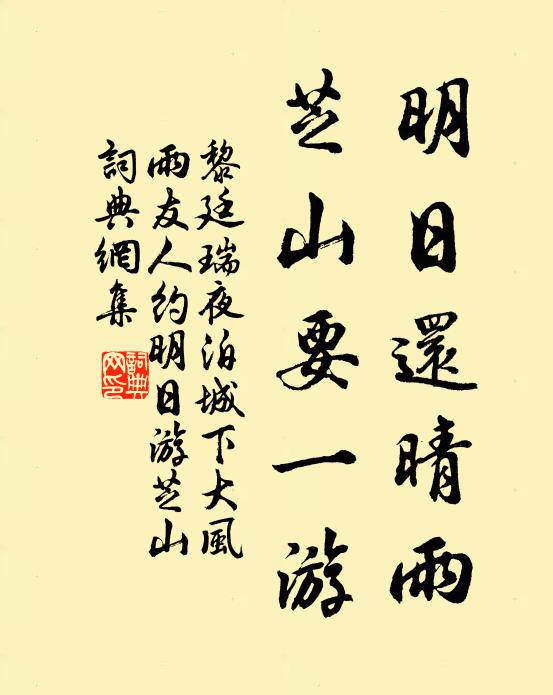 明日還晴雨
芝山要一游
黎廷瑞夜泊城下大風
雨友人約明日游芝山
詞典網集
詞典
网印